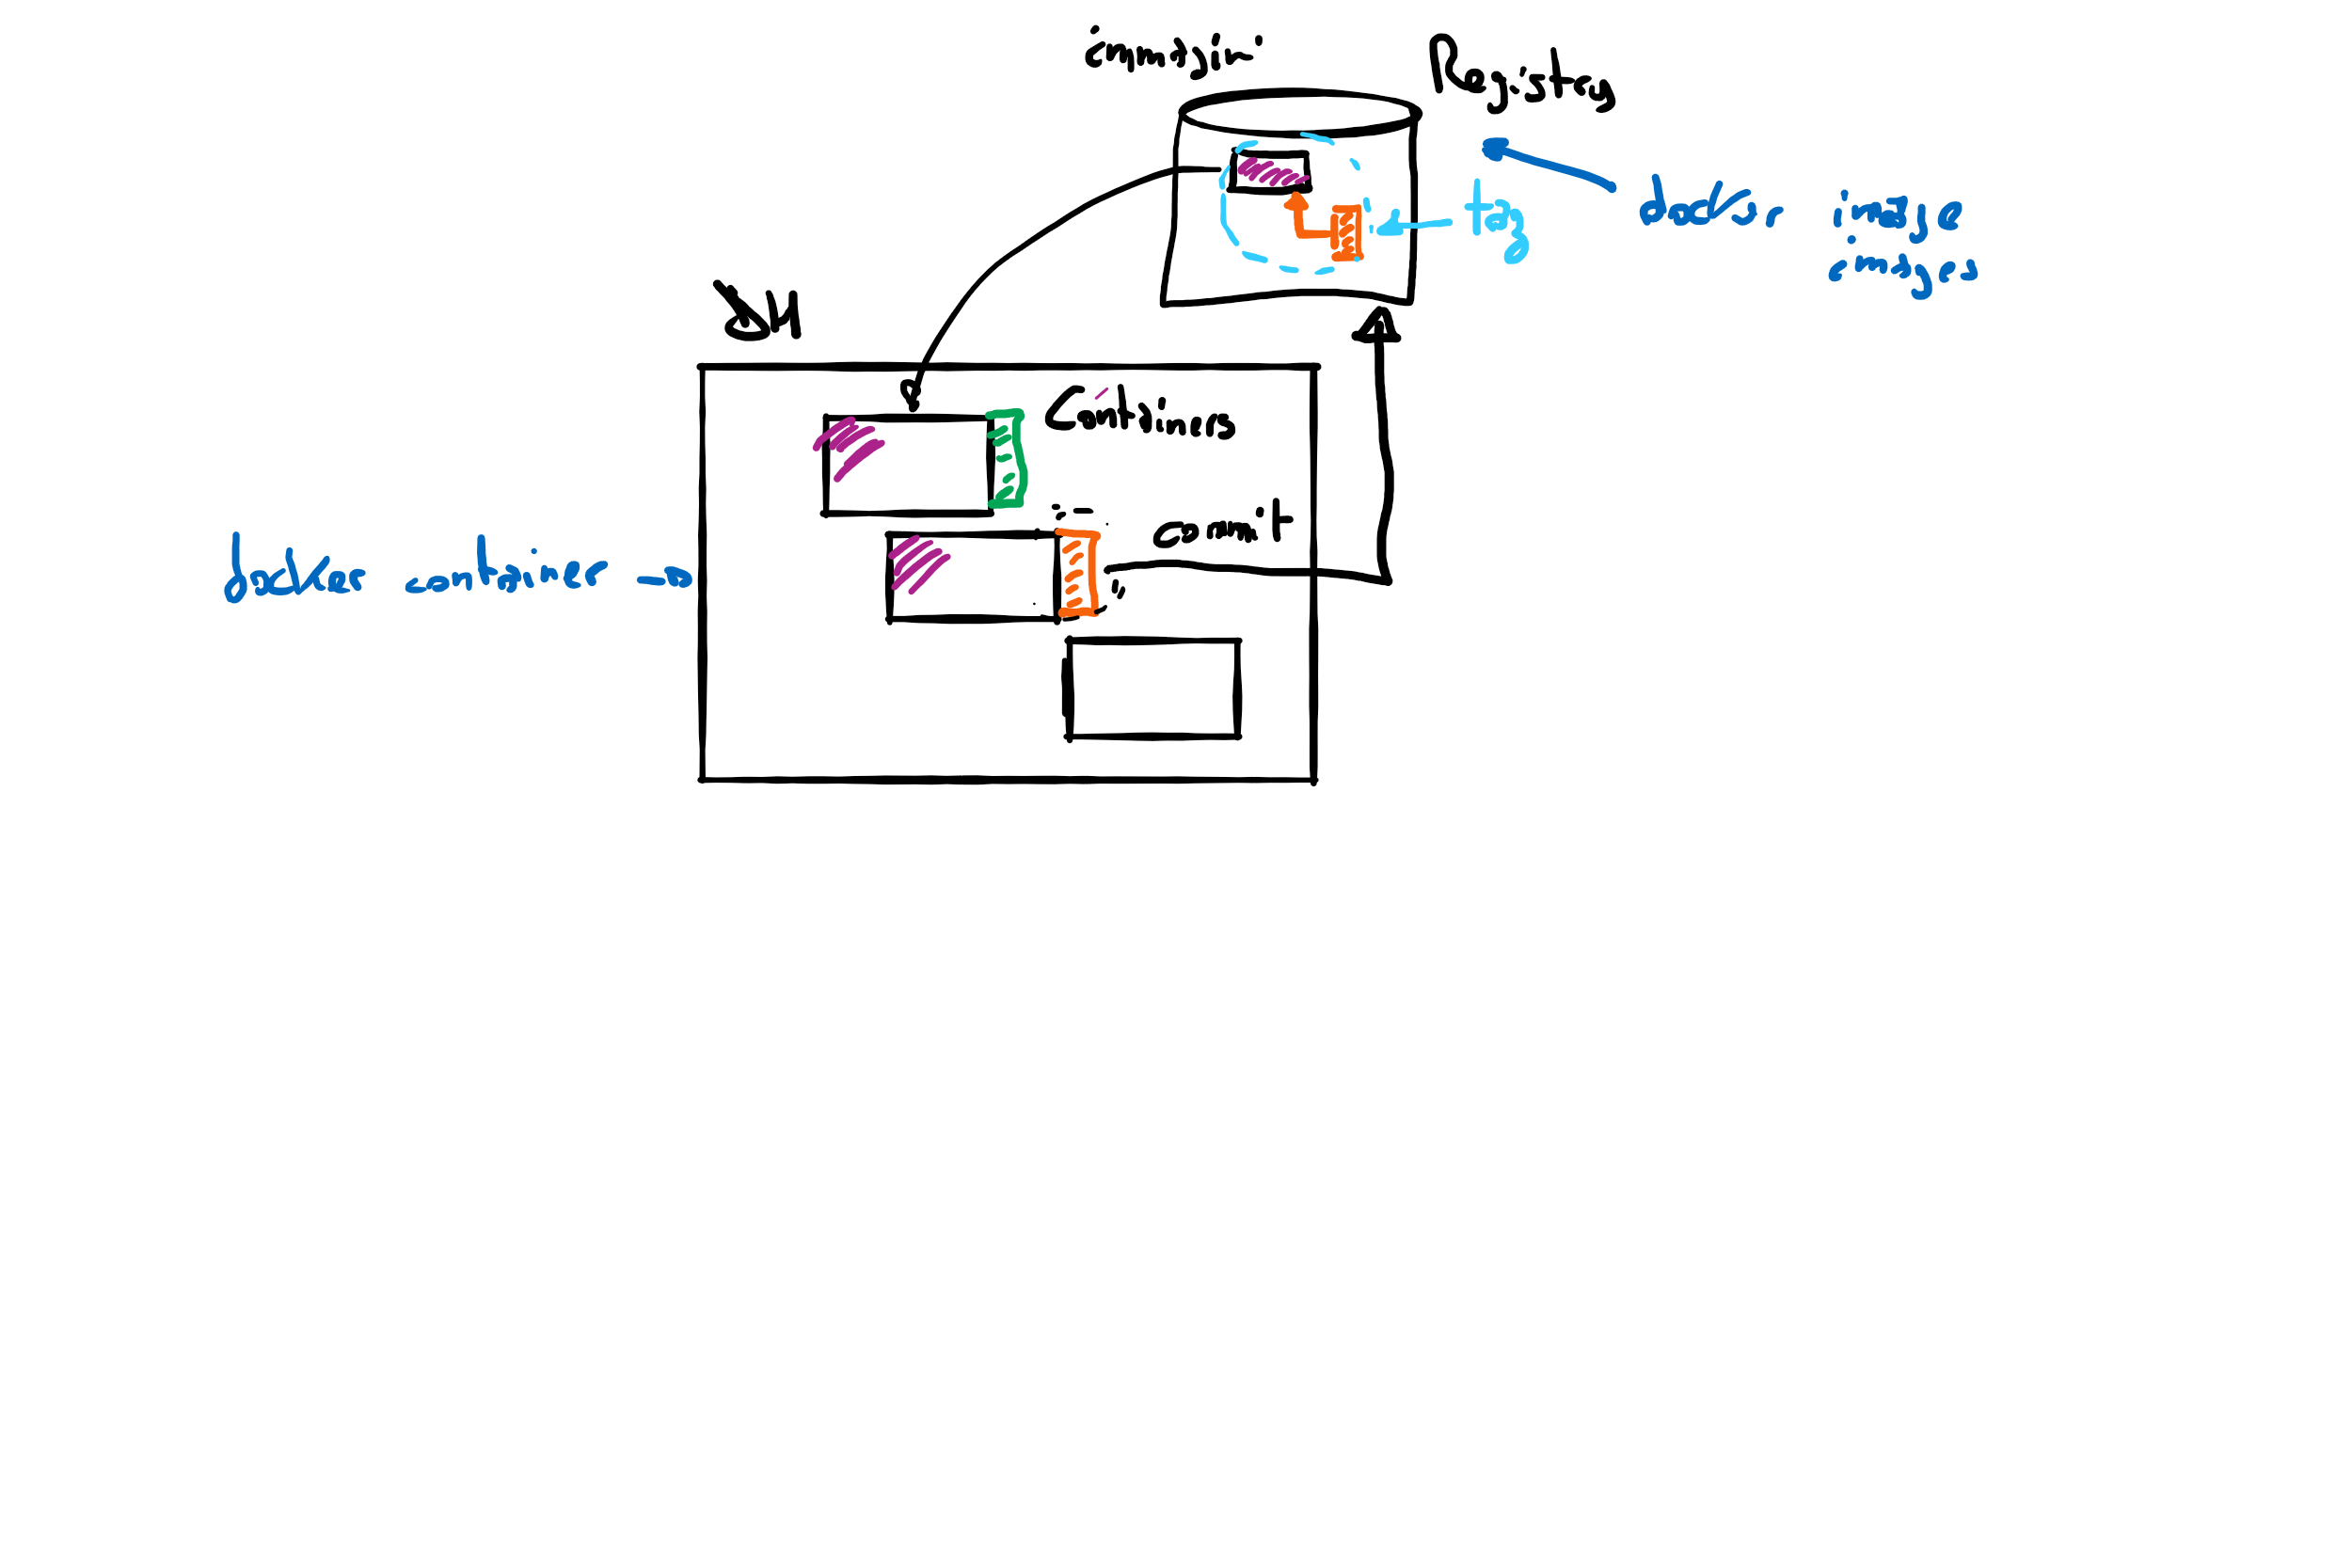 immagini
Registry
docker image
images
tag
DH
Containers
commit
docker container